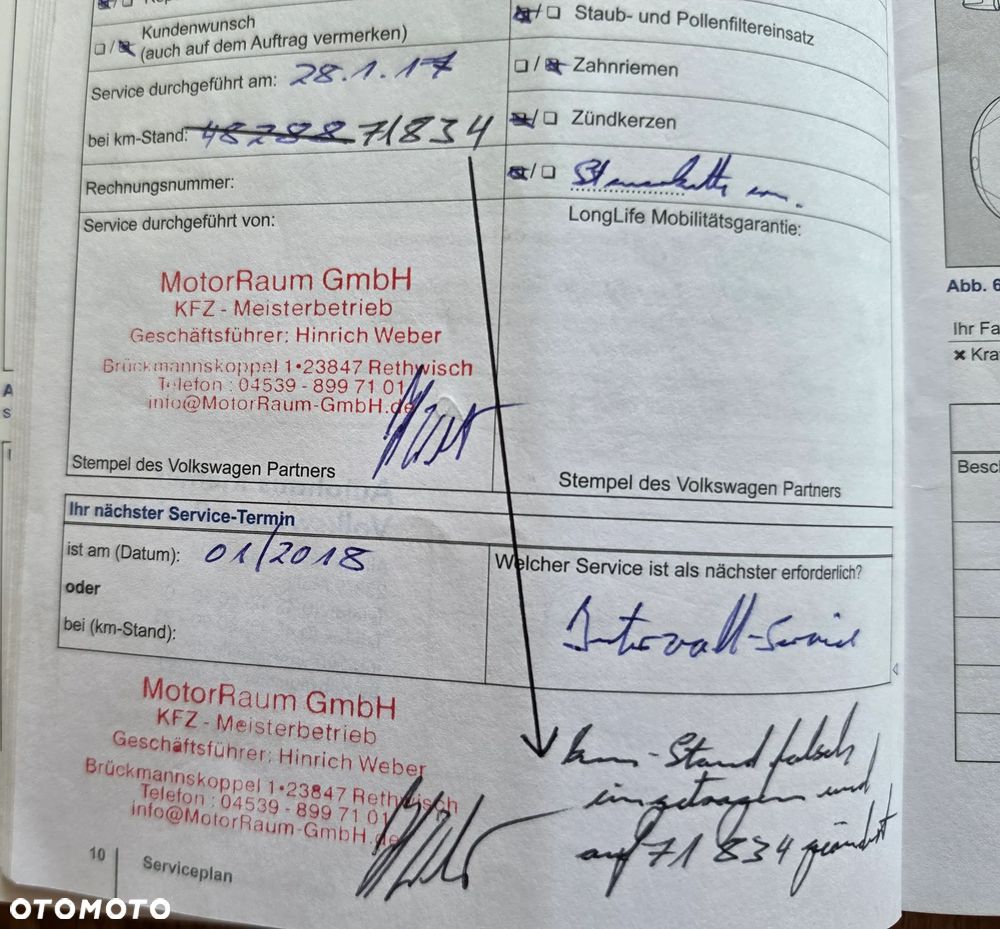 Kundenwunsch
(auch auf dem Auftrag vermerken)
Service durchgeführt am: 28.1.17
bei km-Stand: 48288 71834
Rechnungsnummer:
Service durchgeführt von:
MotorRaum GmbH
KFZ - Meisterbetrieb
Geschäftsführer: Hinrich Weber
Brückmannskoppel 1•23847 Rethwisch
Telefon : 04539 - 899 71 01
info@MotorRaum-GmbH.de
Stempel des Volkswagen Partners
Staub- und Pollenfiltereinsatz
Zahnriemen
Zündkerzen
Steuerkette
LongLife Mobilitätsgarantie:
Stempel des Volkswagen Partners
Ihr nächster Service-Termin
ist am (Datum): 01/2018
oder
bei (km-Stand):
Welcher Service ist als nächster erforderlich?
Intervall-Service
MotorRaum GmbH
KFZ - Meisterbetrieb
Geschäftsführer: Hinrich Weber
Brückmannskoppel 1•23847 Rethwisch
Telefon : 04539 - 899 71 01
info@MotorRaum-GmbH.de
km-Stand falsch
eingetragen und
auf 71 834 geändert
10
Serviceplan
Abb. 6
Ihr Fa
Kra
Besch
OTOMOTO